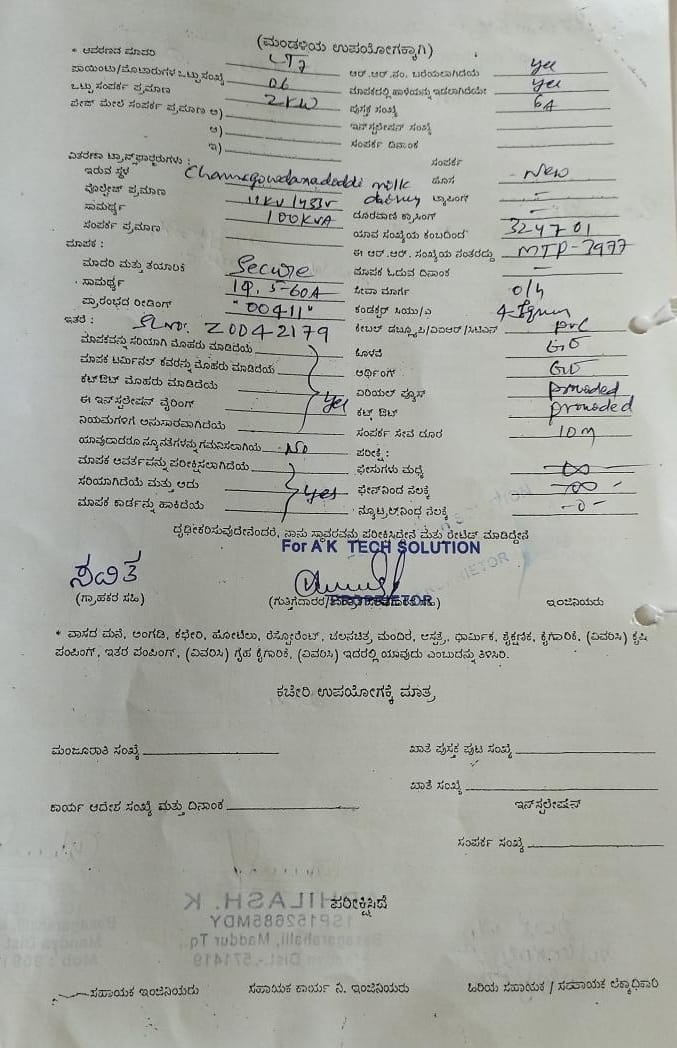 (ಮಂಡಳಿಯ ಉಪಯೋಗಕ್ಕಾಗಿ)
* ಆವರಣದ ಮಾದರಿ LT7 ಆರ್.ಆರ್.ನಂ. ಬರೆಯಲಾಗಿದೆಯೆ yes
ಪಾಯಿಂಟು/ಮೊಟಾರುಗಳ ಒಟ್ಟು ಸಂಖ್ಯೆ 06 ಮಾಪಕದಲ್ಲಿ ಹಾಳೆಯನ್ನು ಇಡಲಾಗಿದೆಯೇ yes
ಒಟ್ಟು ಸಂಪರ್ಕ ಪ್ರಮಾಣ 2KW ಪುಸ್ತಕ ಸಂಖ್ಯೆ 6A
ಪೇಜ್ ಮೇಲೆ ಸಂಪರ್ಕ ಪ್ರಮಾಣ ಅ) ಇನ್‌ಸ್ಟಲೇಷನ್ ಸಂಖ್ಯೆ
ಆ) ಸಂಪರ್ಕ ದಿನಾಂಕ
ಇ)
ವಿತರಣಾ ಟ್ರಾನ್ಸ್‌ಫಾರ್ಮರುಗಳು : ಸಂಪರ್ಕ
ಇರುವ ಸ್ಥಳ Channegowdanadoddi milk dairy ಹೊಸ New
ವೋಲ್ಟೇಜ್ ಪ್ರಮಾಣ 11KV/433V ಟ್ಯಾಪಿಂಗ್ -
ಸಾಮರ್ಥ್ಯ 100KVA ದೂರವಾಣಿ ಕ್ರಾಸಿಂಗ್ -
ಸಂಪರ್ಕ ಪ್ರಮಾಣ ಯಾವ ಸಂಖ್ಯೆಯ ಕಂಬದಿಂದ 324701
ಮಾಪಕ : ಈ ಆರ್.ಆರ್. ಸಂಖ್ಯೆಯ ನಂತರದ್ದು MTP-3977
ಮಾದರಿ ಮತ್ತು ತಯಾರಿಕೆ Secure ಮಾಪಕ ಓದುವ ದಿನಾಂಕ -
ಸಾಮರ್ಥ್ಯ 1Φ, 5-60A ಸೇವಾ ಮಾರ್ಗ O/h
ಪ್ರಾರಂಭದ ರೀಡಿಂಗ್ "00411" ಕಂಡಕ್ಟರ್ ಸಿಯು/ಎ 4-Sqmm
ಇತರೆ : Sl.No. Z0042179 ಕೇಬಲ್ ಡಬ್ಲ್ಯೂಪಿ/ಎಐಆರ್/ಸಿಟಿಎಸ್ pvc
ಮಾಪಕವನ್ನು ಸರಿಯಾಗಿ ಮೊಹರು ಮಾಡಿದೆಯೆ ಕೊಳವೆ GO
ಮಾಪಕ ಟರ್ಮಿನಲ್ ಕವರನ್ನು ಮೊಹರು ಮಾಡಿದೆಯೆ ಅರ್ಥಿಂಗ್ GO
ಕಟ್‌ಔಟ್ ಮೊಹರು ಮಾಡಿದೆಯೆ ಏರಿಯಲ್ ಫ್ಯೂಸ್ provided
ಈ ಇನ್‌ಸ್ಟಲೇಷನ್ ವೈರಿಂಗ್ yes ಕಟ್ ಔಟ್ provided
ನಿಯಮಗಳಿಗೆ ಅನುಸಾರವಾಗಿದೆಯೆ ಸಂಪರ್ಕ ಸೇವ ದೂರ 10m
ಯಾವುದಾದರೂ ನ್ಯೂನತೆಗಳನ್ನು ಗಮನಿಸಲಾಗಿಯೆ No ಪರೀಕ್ಷೆ :
ಮಾಪಕ ಆವರ್ತವನ್ನು ಪರೀಕ್ಷಿಸಲಾಗಿದೆಯೆ ಫೇಸುಗಳು ಮಧ್ಯೆ ∞
ಸರಿಯಾಗಿದೆಯೆ ಮತ್ತು ಅದು yes ಫೇಸ್‌ನಿಂದ ನೆಲಕ್ಕೆ ∞
ಮಾಪಕ ಕಾರ್ಡನ್ನು ಹಾಕಿದೆಯೆ ನ್ಯೂಟ್ರಲ್‌ನಿಂದ ನೆಲಕ್ಕೆ -0-
ದೃಢೀಕರಿಸುವುದೇನೆಂದರೆ, ನಾನು ಸ್ಥಾವರವನ್ನು ಪರೀಕ್ಷಿಸಿದ್ದೇನೆ ಮತ್ತು ರೇಟೆಡ್ ಮಾಡಿದ್ದೇನೆ
For A K TECH SOLUTION
ಸವಿತ
PROPRIETOR
(ಗ್ರಾಹಕರ ಸಹಿ) ಇಂಜಿನಿಯರು
* ವಾಸದ ಮನೆ, ಅಂಗಡಿ, ಕಛೇರಿ, ಹೋಟೆಲು, ರೆಸ್ಟೋರೆಂಟ್, ಚಲನಚಿತ್ರ ಮಂದಿರ, ಆಸ್ಪತ್ರೆ, ಧಾರ್ಮಿಕ, ಶೈಕ್ಷಣಿಕ, ಕೈಗಾರಿಕೆ, (ವಿವರಿಸಿ) ಕೃಷಿ
ಪಂಪಿಂಗ್, ಇತರ ಪಂಪಿಂಗ್, (ವಿವರಿಸಿ) ಗೃಹ ಕೈಗಾರಿಕೆ, (ವಿವರಿಸಿ) ಇದರಲ್ಲಿ ಯಾವುದು ಎಂಬುದನ್ನು ತಿಳಿಸಿರಿ.
ಕಚೇರಿ ಉಪಯೋಗಕ್ಕೆ ಮಾತ್ರ
ಮಂಜೂರಾತಿ ಸಂಖ್ಯೆ ಖಾತೆ ಪುಸ್ತಕ ಪುಟ ಸಂಖ್ಯೆ
ಖಾತೆ ಸಂಖ್ಯೆ
ಕಾರ್ಯ ಆದೇಶ ಸಂಖ್ಯೆ ಮತ್ತು ದಿನಾಂಕ ಇನ್‌ಸ್ಟಲೇಷನ್
ಸಂಪರ್ಕ ಸಂಖ್ಯೆ
ಪರೀಕ್ಷಿಸಿದೆ
ಸಹಾಯಕ ಇಂಜಿನಿಯರು ಸಹಾಯಕ ಕಾರ್ಯ ನಿ. ಇಂಜಿನಿಯರು ಹಿರಿಯ ಸಹಾಯಕ / ಸಹಾಯಕ ಲೆಕ್ಕಾಧಿಕಾರಿ